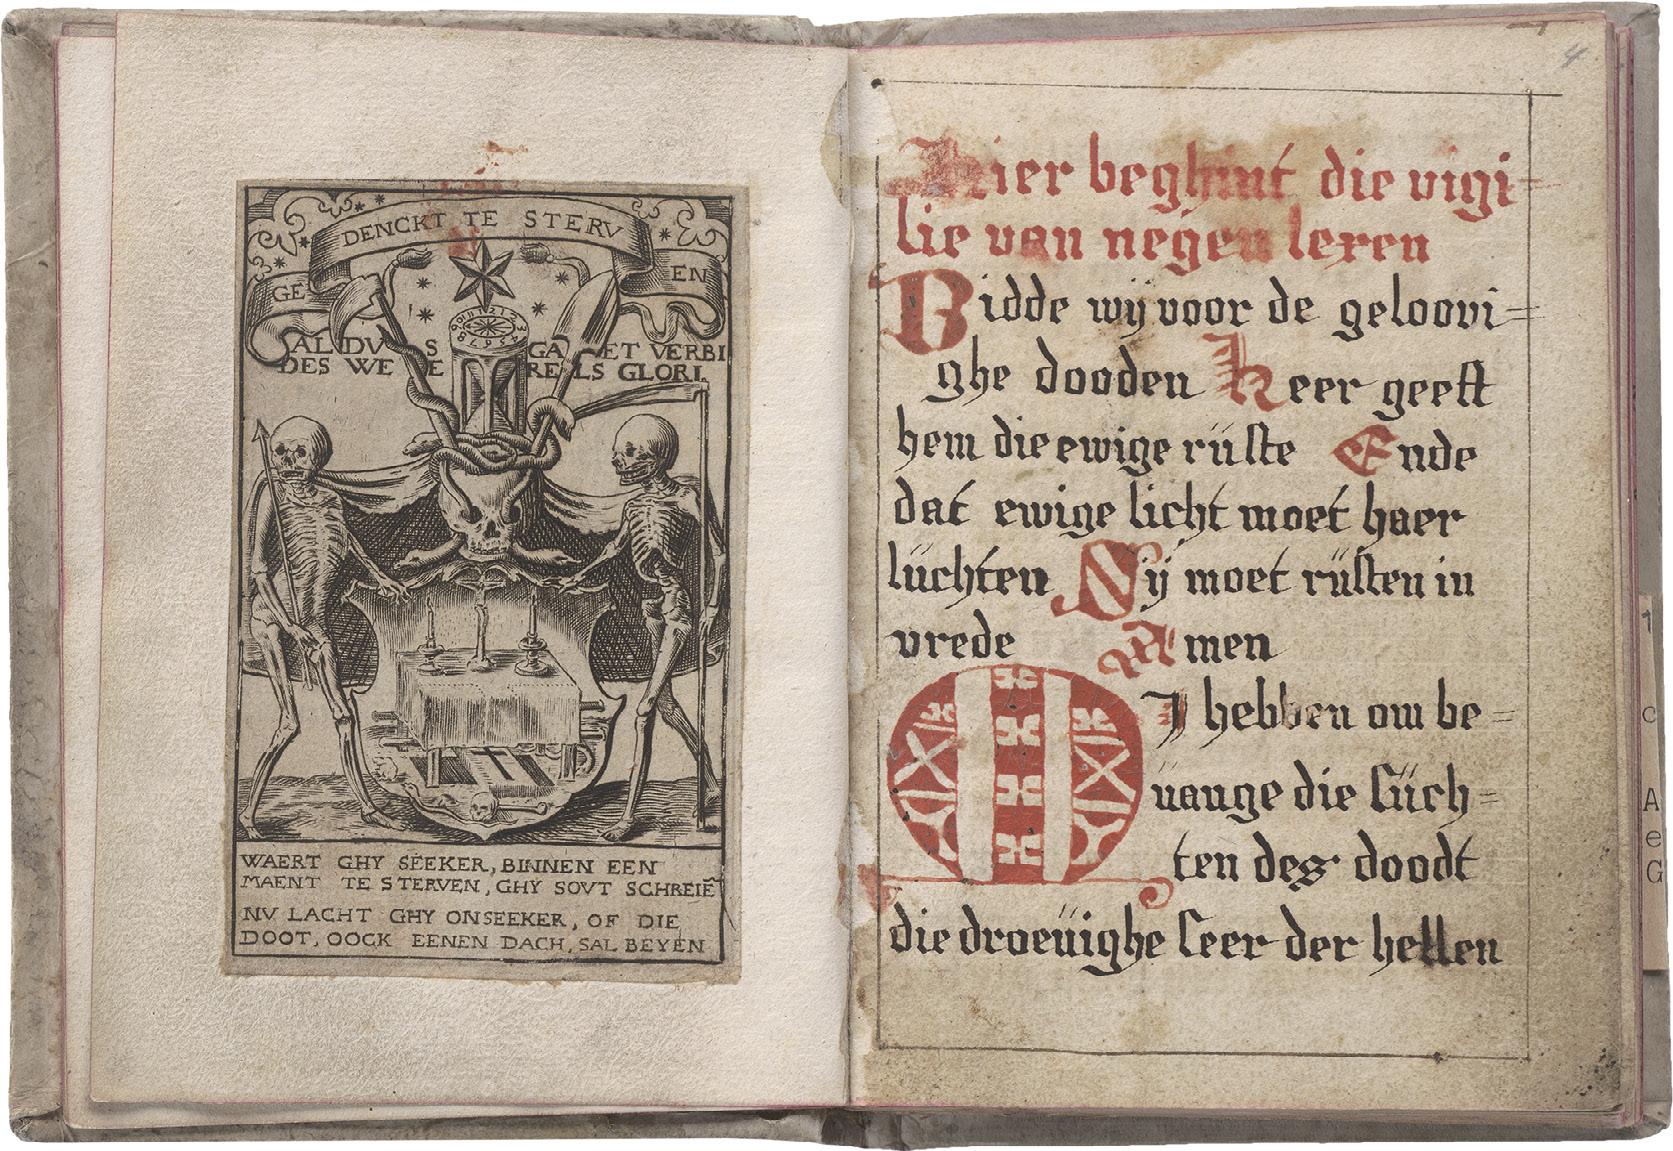 DENCKT TE STERV
GE EN
ALDVS GAET VERBI
DES WERELS GLORI.
WAERT GHY SEEKER, BINNEN EEN
MAENT TE STERVEN, GHY SOVT SCHREIẼ
NV LACHT GHY ONSEEKER, OF DIE
DOOT, OOCK EENEN DACH, SAL BEYEN
4
Hier beghint die vigi=
lie van negen lexen
Bidde wij voor de geloovi=
ghe dooden Heer geeft
hem die ewige rüste Ende
dat ewige licht moet haer
lüchten Sij moet rüsten in
vrede Amen
MIJ hebben om be=
üange die süch=
ten des doodt
die droeüighe seer der hellen
1
c
A
e
G